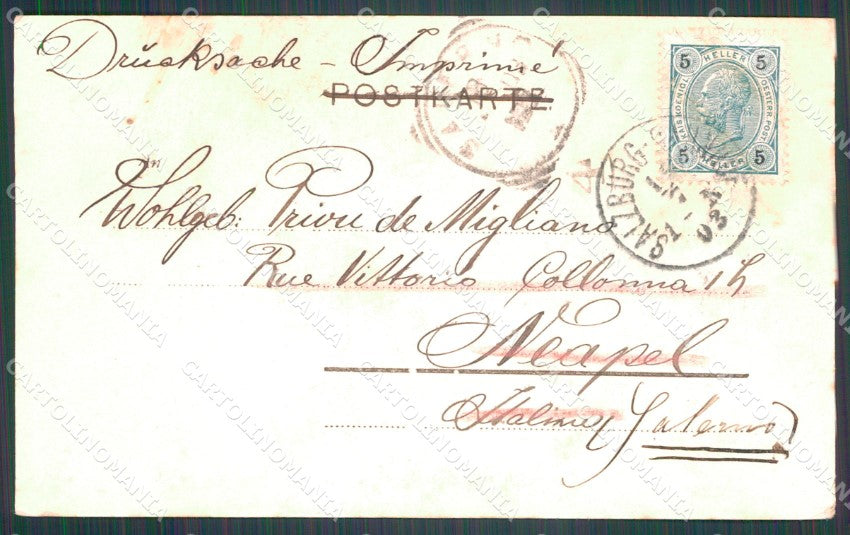 Drucksache – Imprimé
POSTKARTE
5 HELLER 5
KAIS. KOENIG. OESTERR. POST
5 5
SALZBURG
03
An
Wohlgeb: Privu de Migliano
Rue Vittorio Collonna 14
Neapel
Italien (Salerno)
CARTOLINOMANIA